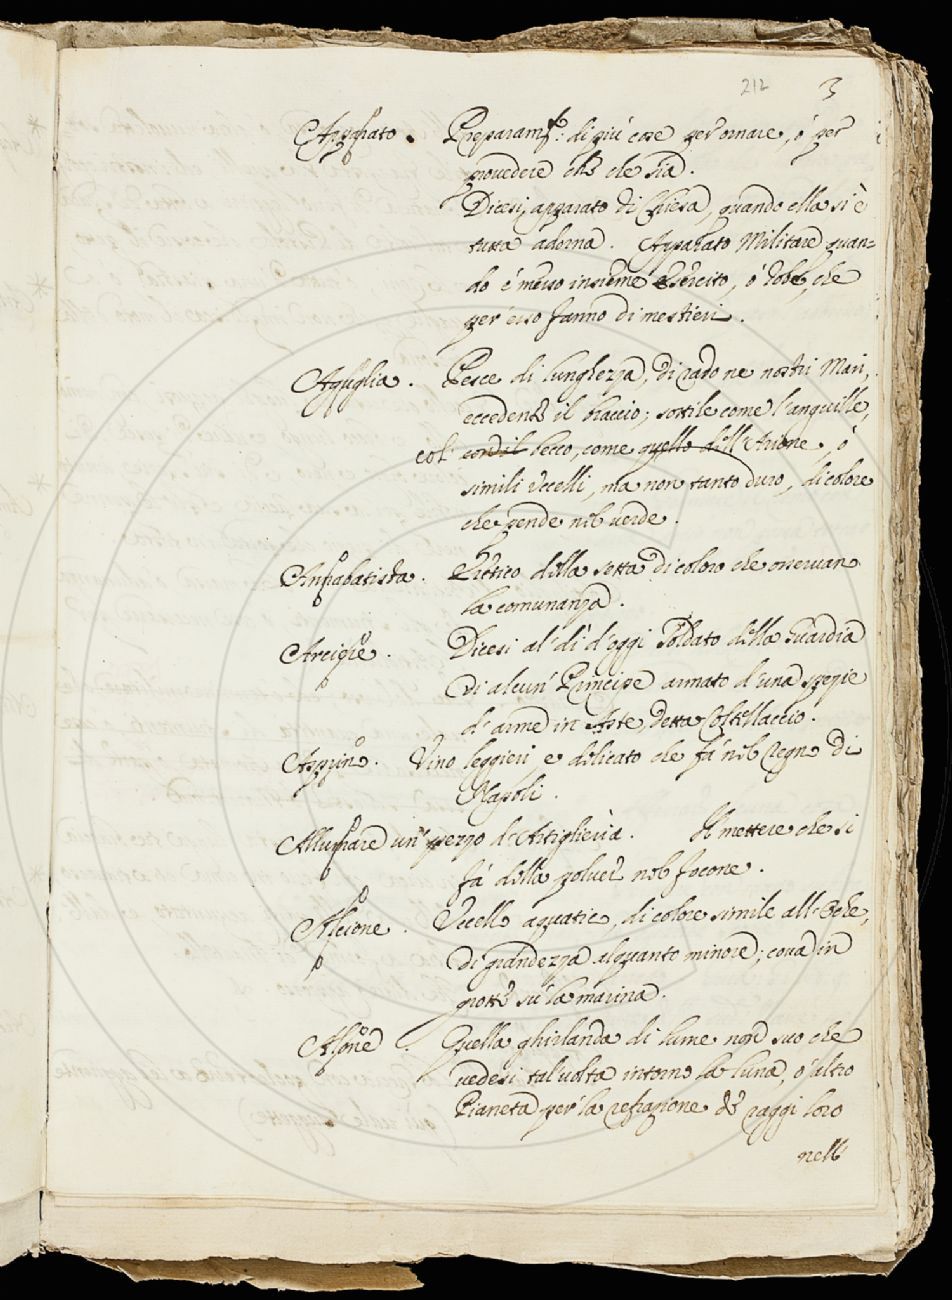 212 3
Apparato. Preparamto: di più cose per ornare, ò per
prouedere che che sia.
Dicesi, apparato di Chiesa, quando ella si è
tutta adorna. Apparato Militare quan=
do é messo insieme Esercito, ó robbe, che
per esso fanno di mestieri.
Aguglia. Pesce di lunghezza, di rado ne nostri Mari,
eccedente il braccio; sottile come l'anguille,
col becco, come quello dell'Arione, ó
simili Vccelli, ma non tanto duro, di colore
che pende nel uerde.
Anabatista. Eretico della setta di coloro che osseruan
la comunanza.
Arcigie. Dicesi al' dì d'oggi Soldato della Guardia
di alcun' Principe armato d'una spezie
d'arme in Aste, detta Coltellaccio.
Asprino. Vino leggieri e delicato che fà nel Regno di
Napoli.
Allumare un' pezzo d'Artiglieria. Il mettere che si
fá della poluere nel focone.
Alcione. Vccello aquatico, di colore simile all'Oche,
di grandezza alquanto minore; coua in
grotte sù la marina.
Alone. Quella ghirlanda di lume non suo che
uedesi tal uolta intorno la luna, ó altro
Pianeta per la refrazione de raggi loro
nelle